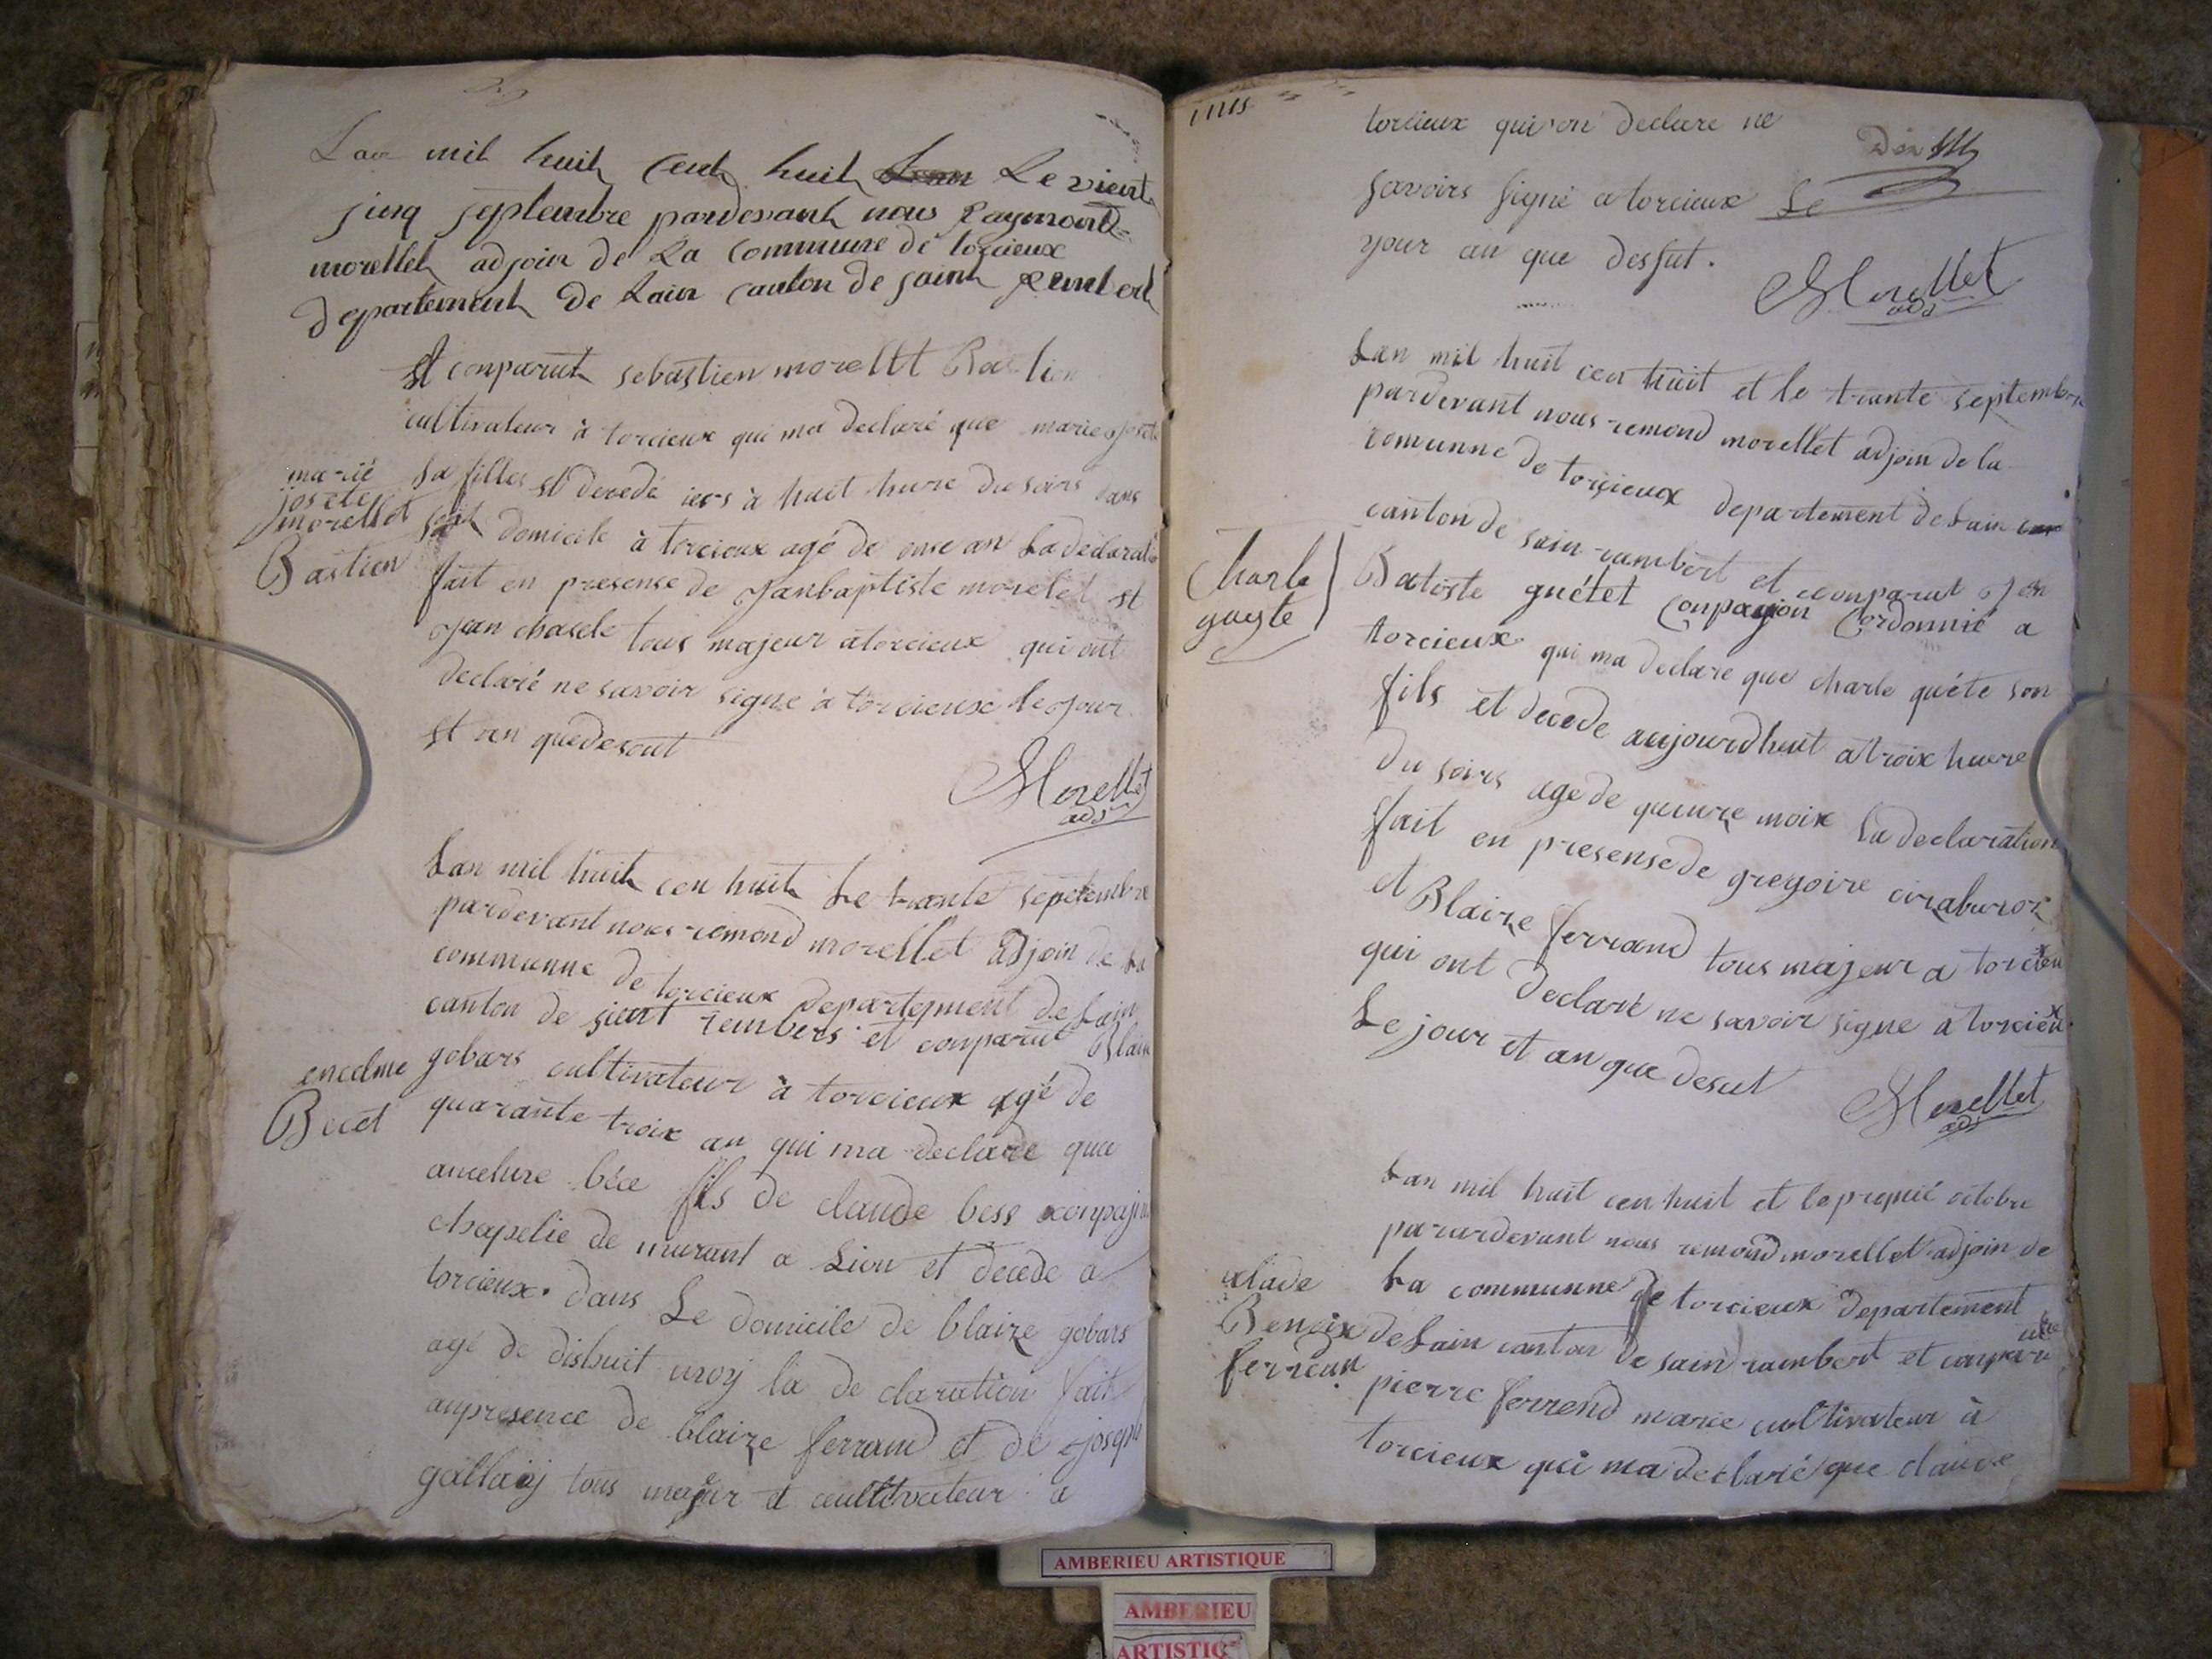 Lan mil huit Cent huit Le vient
jinq septembre pardevant nous Raymond
morellet adjoin de La Commune de torcieux
departement De Lain Canton de saint Rembert
st comparut sebastien morellet Bastien
cultivateur à torcieux qui ma declaré que marie josete
marie
josete
morellet
Bastien
sa filles st decedé iers à huit hure du soirs dans
domicile à torcieux agé de onse an La declaration
fait en presense de janbaptiste morelet st
jean chasele tous majeur a torcieux qui ont
declaré ne savoir signe à torcieux le jour
st an que desout
Morellet
adj
Lan mil huit cen huit Le trante sepetembre
pardevant nous remond morellet adjoin de La
communne de torcieux departement de Lain
canton de sient rembers et conparut Blaire
encelme
Becet
gobars cultivateur à torcieux agé de
quarante troix an qui ma declare que
ancelme béce fils de claude bess conpajion
chapelie de murant a Lion et decede a
torcieux. dans Le domicile de blaize gobars
agé de dishuit moy la de claration fait
anpresence de blaize ferrand et de joseph
gallaij tous majeur et ceultivateur a
torcieux qui on declare ne
savoirs signé a torcieux Le
your an que dessut.
Morellet
adj
Lan mil huit cen huit et le trante septembre
pardevant nous remond morellet adjoin de la
comunne de torcieux departement de Lain
canton de sain rambert et conparut jen
Charle
guyte
Batiste guétet Conpagion Cordonnié a
torcieux qui ma declare que charle quéte son
fils et decede aujourdhuit a troix huere
du soirs age de quinze moix La declaration
fait en presense de gregoire
et Blaize ferrand tous majeur a torcieux
qui ont declaré ne savoir signe a torcieux
Le jour et an que desut
Morellet
adj
Lan mil huit cen huit et le premié octobre
parardevant nous remond morellet adjoin de
clade
Benoix
ferrean
La communne de torcieux departement
de Lain canton de sain rambert et conparu
pierre ferrend marie cultivateur à
torcieux qui ma declarié que clauve
AMBERIEU ARTISTIQUE
AMBERIEU
ARTISTIQ